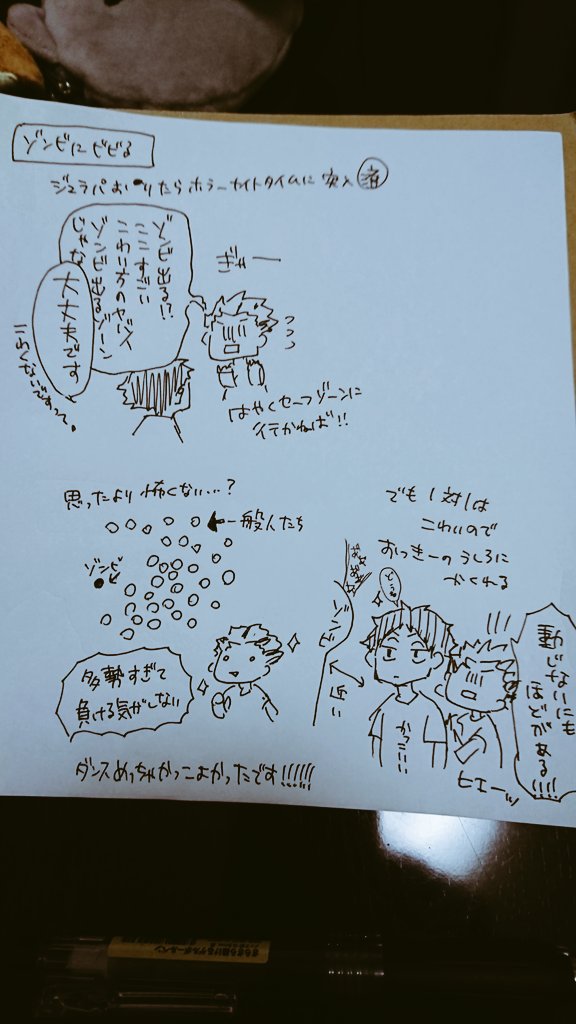 ゾンビにビビる
ジュラパよりたらホラーナイトタイムに突入
ぎゃー
ゾンビ出る!?
ここすごい
こわい方のヤバイ
ゾンビ出るゾーン
じゃな
大丈夫です
こわくないですって。
はやくセーフゾーンに
行かねば!!
思ったより怖くない…?
一般人たち
ゾンビ
多勢すぎて
負ける気がしない
でも1対1は
こわいので
おっきーのうしろに
かくれる
ゾンビ
近い
かっこいい
ほどがある!!!!
ヒエーッ
ダンスめっちゃかっこよかったです!!!!!!